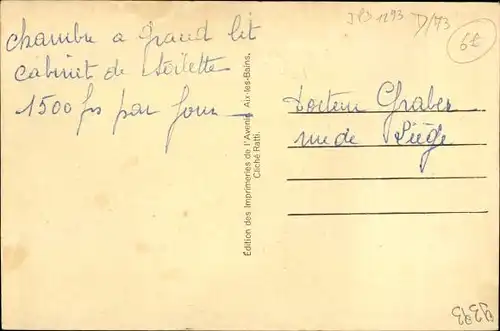 chambre a grand lit
cabinet de toilette
1500 frs par jour
Édition des Imprimeries de l'Avenir, Aix-les-Bains.
Cliché Ratti.
docteur Graber
rue de Liège
JP3 1293 D/73
6E